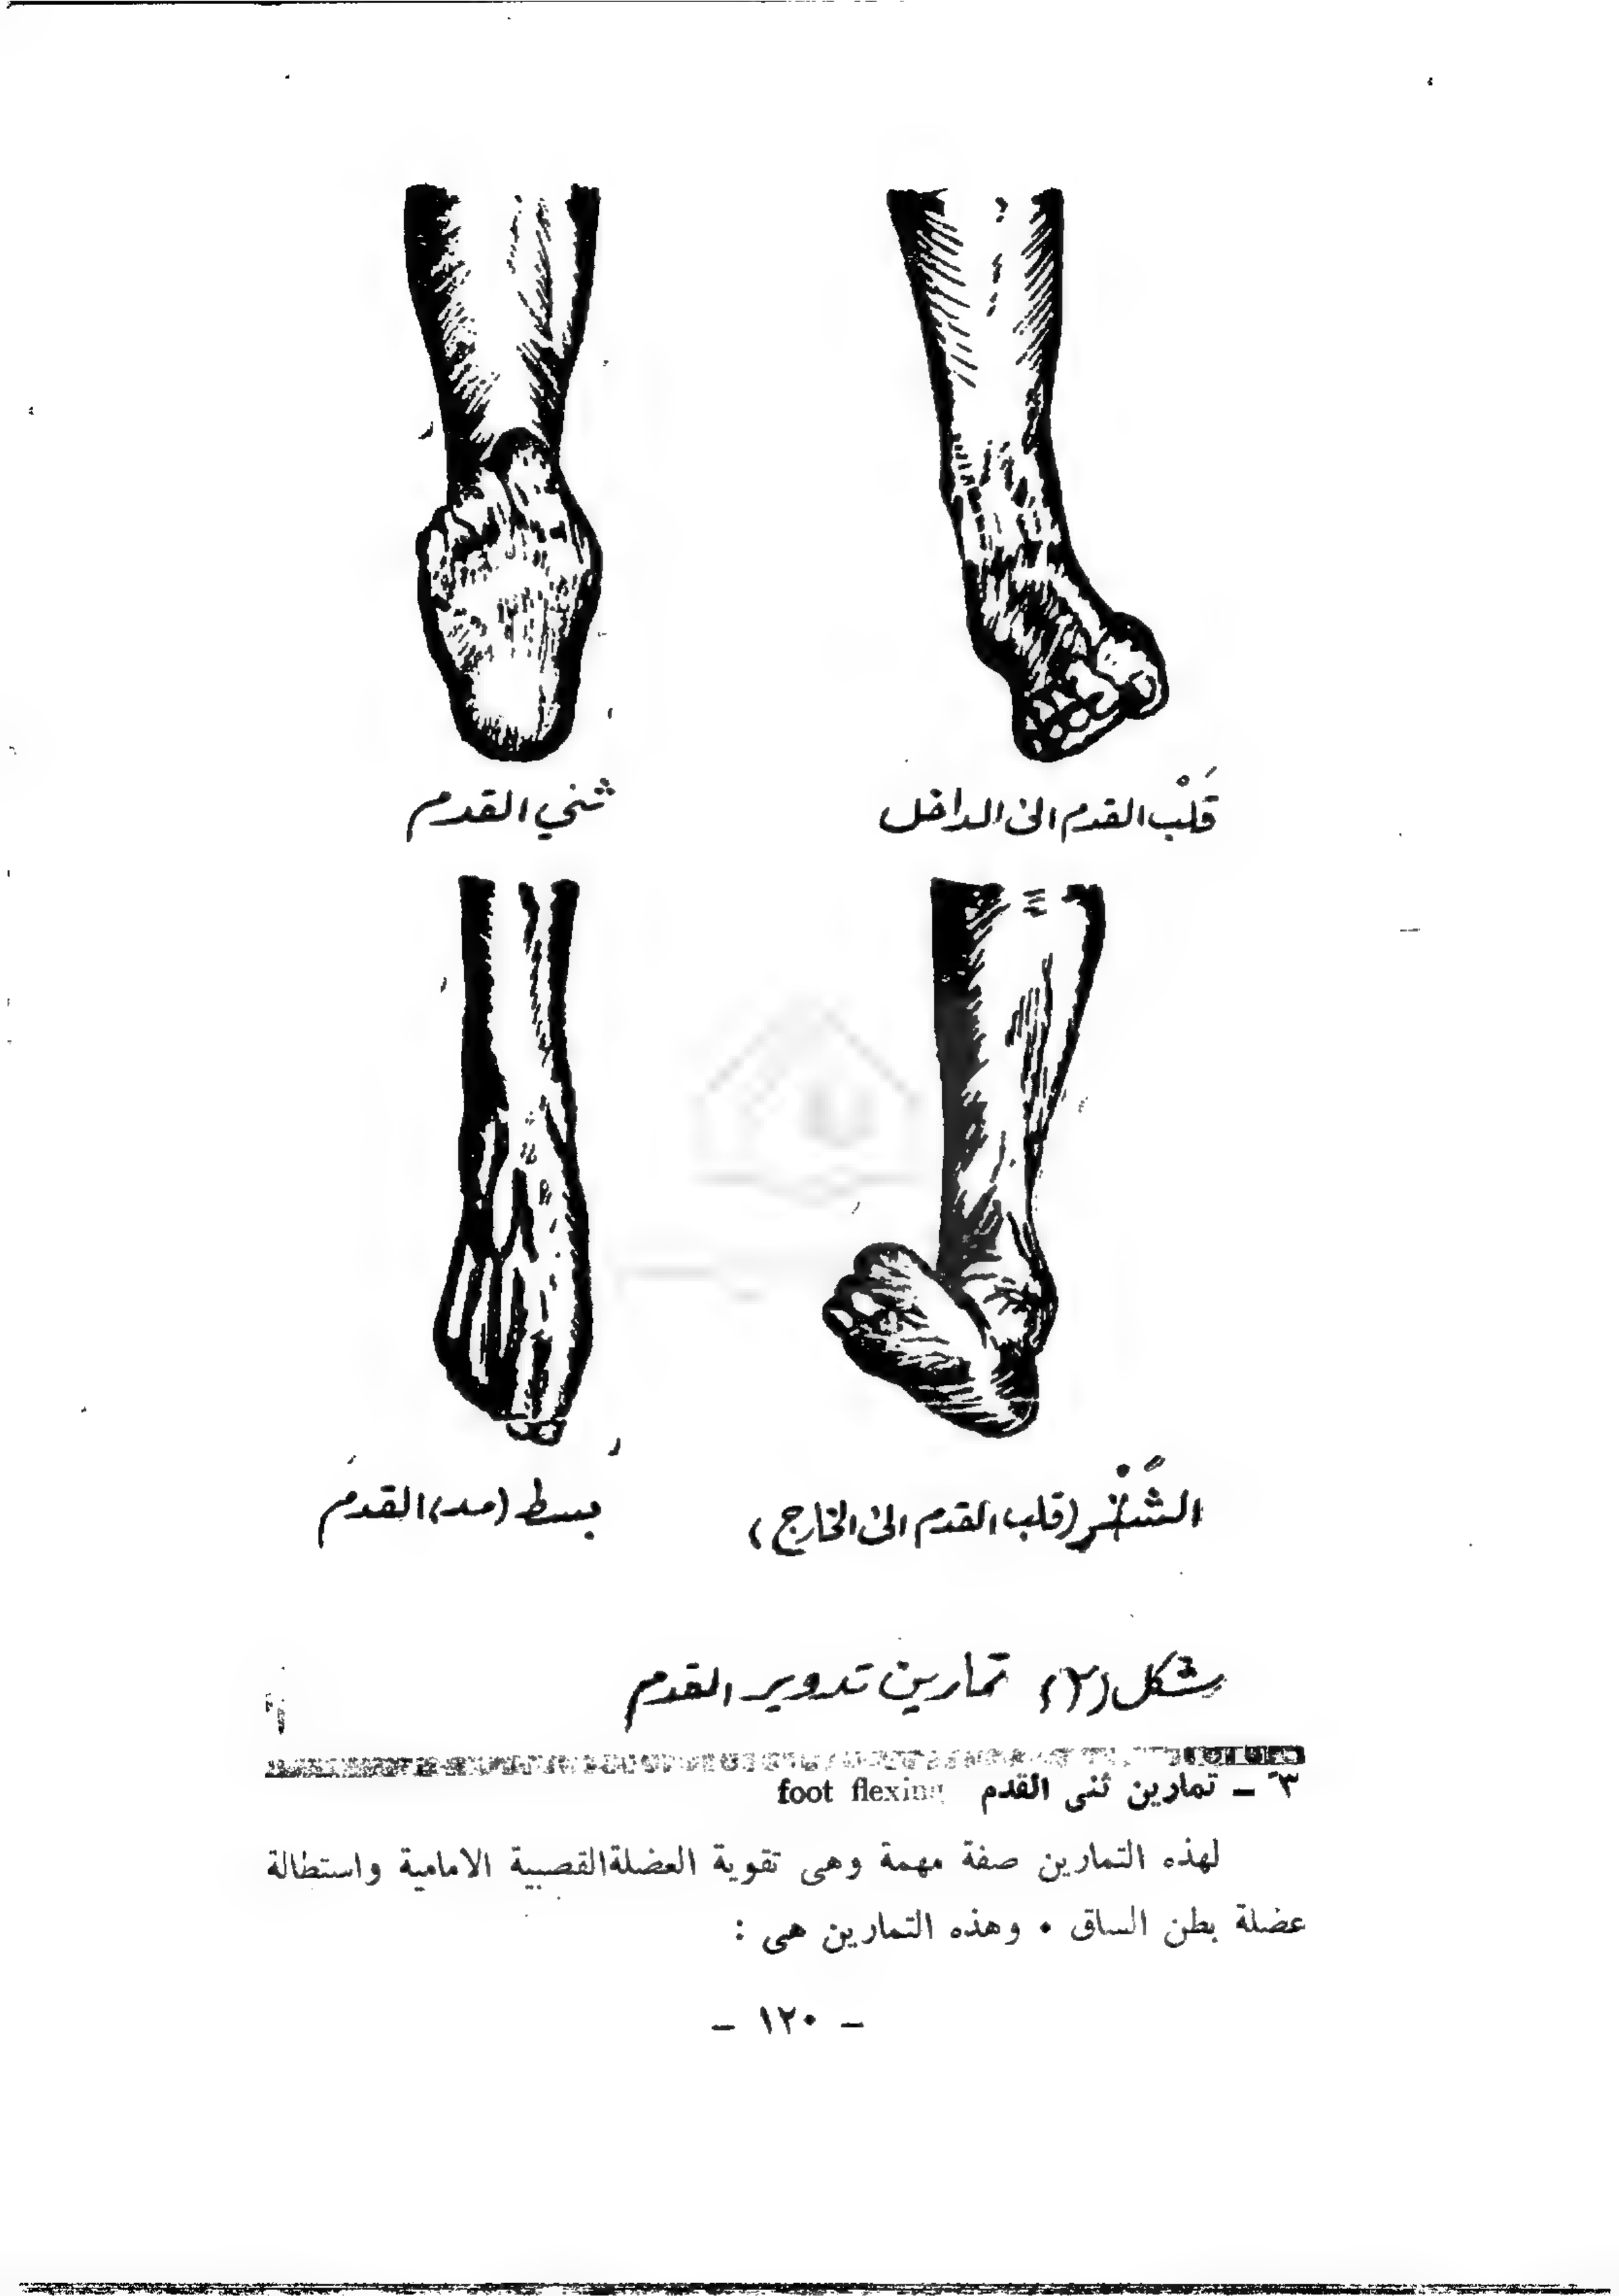 قَلْب القدم الى الداخل
ثني القدم
الشَّتَر (قلب القدم الى الخارج)
بسط (مد) القدم
شكل (٢) تمارين تدوير القدم
٣ - تمارين ثنى القدم foot flexing
لهذه التمارين صفة مهمة وهى تقوية العضلة القصبية الامامية واستطالة
عضلة بطن الساق . وهذه التمارين هى :
- ١٢٠ -